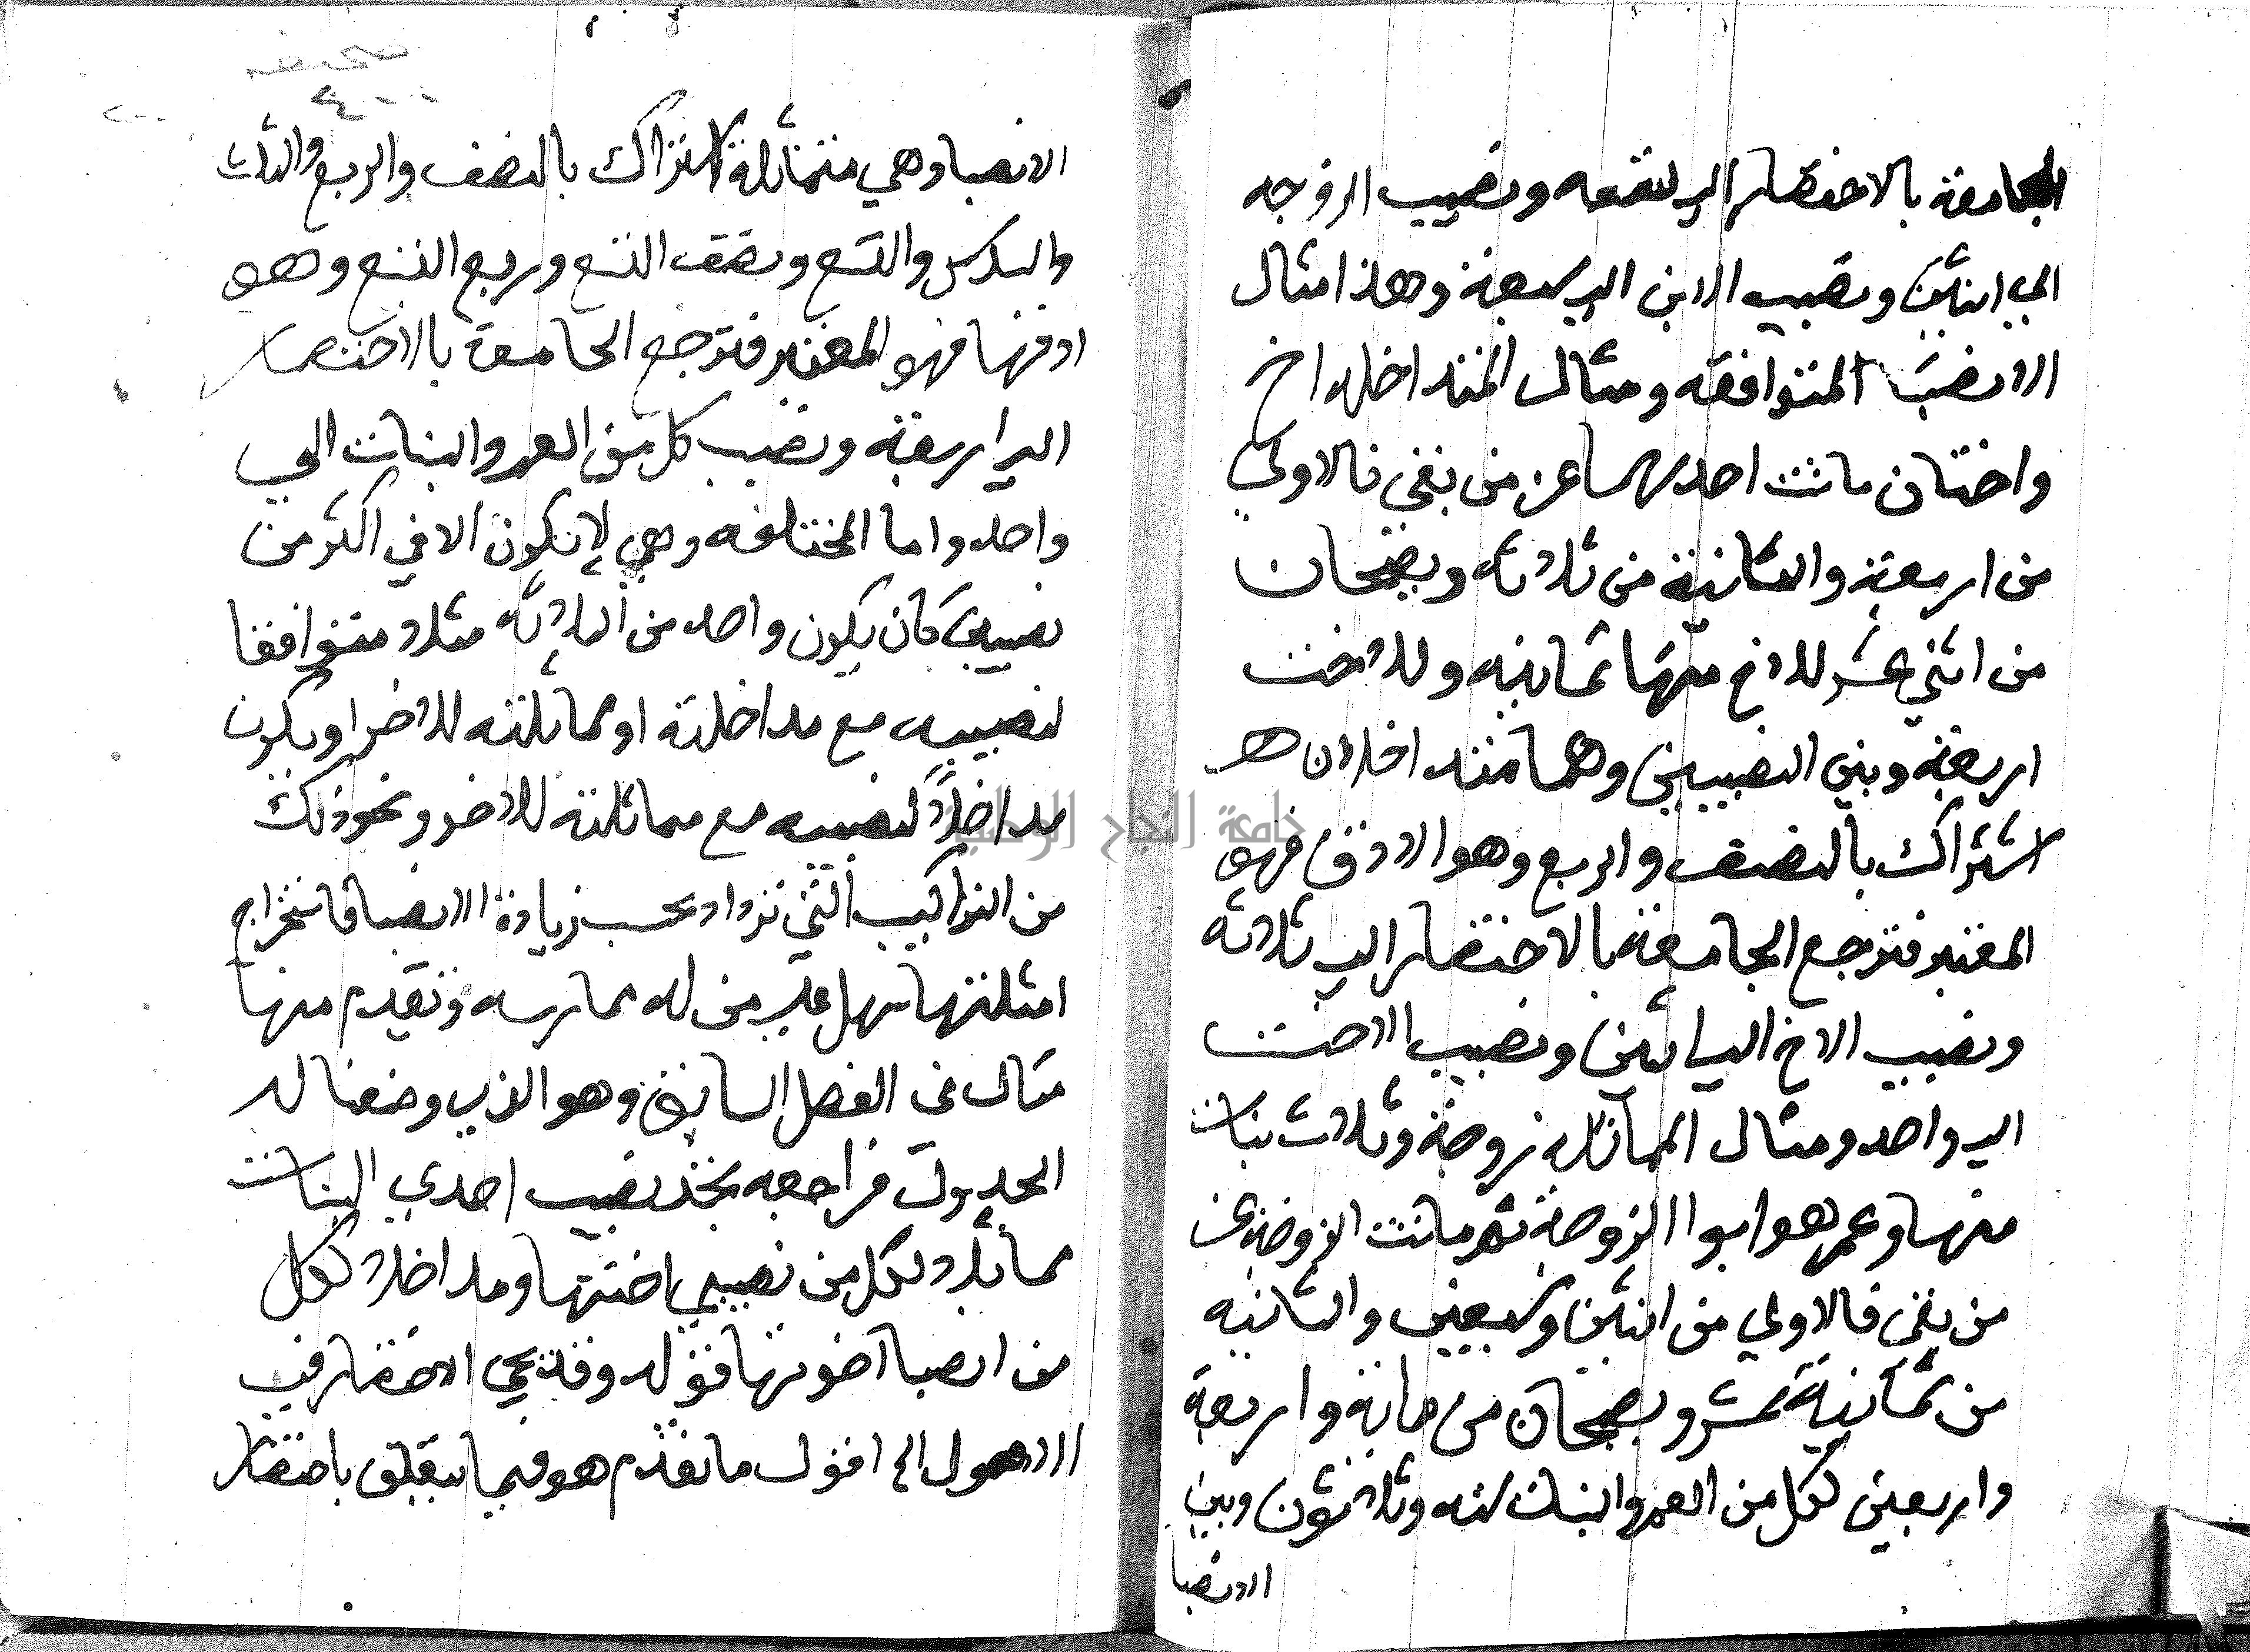 الجامعة بالاختصار الي تسعه ونصيب الزوجه
الي اثنين ونصيب الابن الي سبعة وهذا مثال
الانصبا المتوافقه ومثال المتداخله اخ
واختان ماتت احديهما عن من بقي فالاولي
من اربعة والثانية من ثلاثه ويصحان
من اثني عشر للاخ منها ثمانيه وللاخت
اربعة وبين النصيبين وهما متداخلان
اشتراك بالنصف والربع وهو الادق فهو
المعتبر فترجع الجامعة بالاختصار الي ثلاثه
ونصيب الاخ الي اثنين ونصيب الاخت
الي واحد ومثال المماثله زوجة وثلاث بنات
منها وعم هو ابوا الزوجة ثم ماتت الزوجة عن
من بقي فالاولي من اثنين وسبعين والثانيه
من ثمانية عشر ويصحان من مائة واربعة
واربعين لكل من العم والبنات سته وثلاثون وبين
الانصبا
صحيفه
الانصبا وهي متماثلة اشتراك بالنصف والربع والثلث
والسدس والتسع ونصف التسع وربع التسع وهو
ادقها فهو المعتبر فترجع الجامعة بالاختصار
الي اربعة ونصيب كل من العم والبنات الي
واحد واما المختلفه وهي لا تكون الا في اكثر من
نصيبين كان يكون واحد من الثلاثه مثلا متوافقا
لنصيبه مع مداخلته او مماثلته للاخر او يكون
مداخلاً لنصيبه مع مماثلته للاخر ونحو ذلك
من التراكيب التي تزداد بحسب زيادة الانصبا فاستخراج
امثلتها سهل علي من له ممارسه وتقدم منها
مثال في الفصل السابق وهو الذي وضعنا له
الجدول فراجعه تجد نصيب احدي البنات
مماثلا لكل من نصيبي اختيها ومداخلا لكل
من انصبا اخوتها قوله وقد يجي الاختصار في
الاصول الخ اقول ما تقدم هو فيما يتعلق باختصار
جامعة النجاح الوطنية